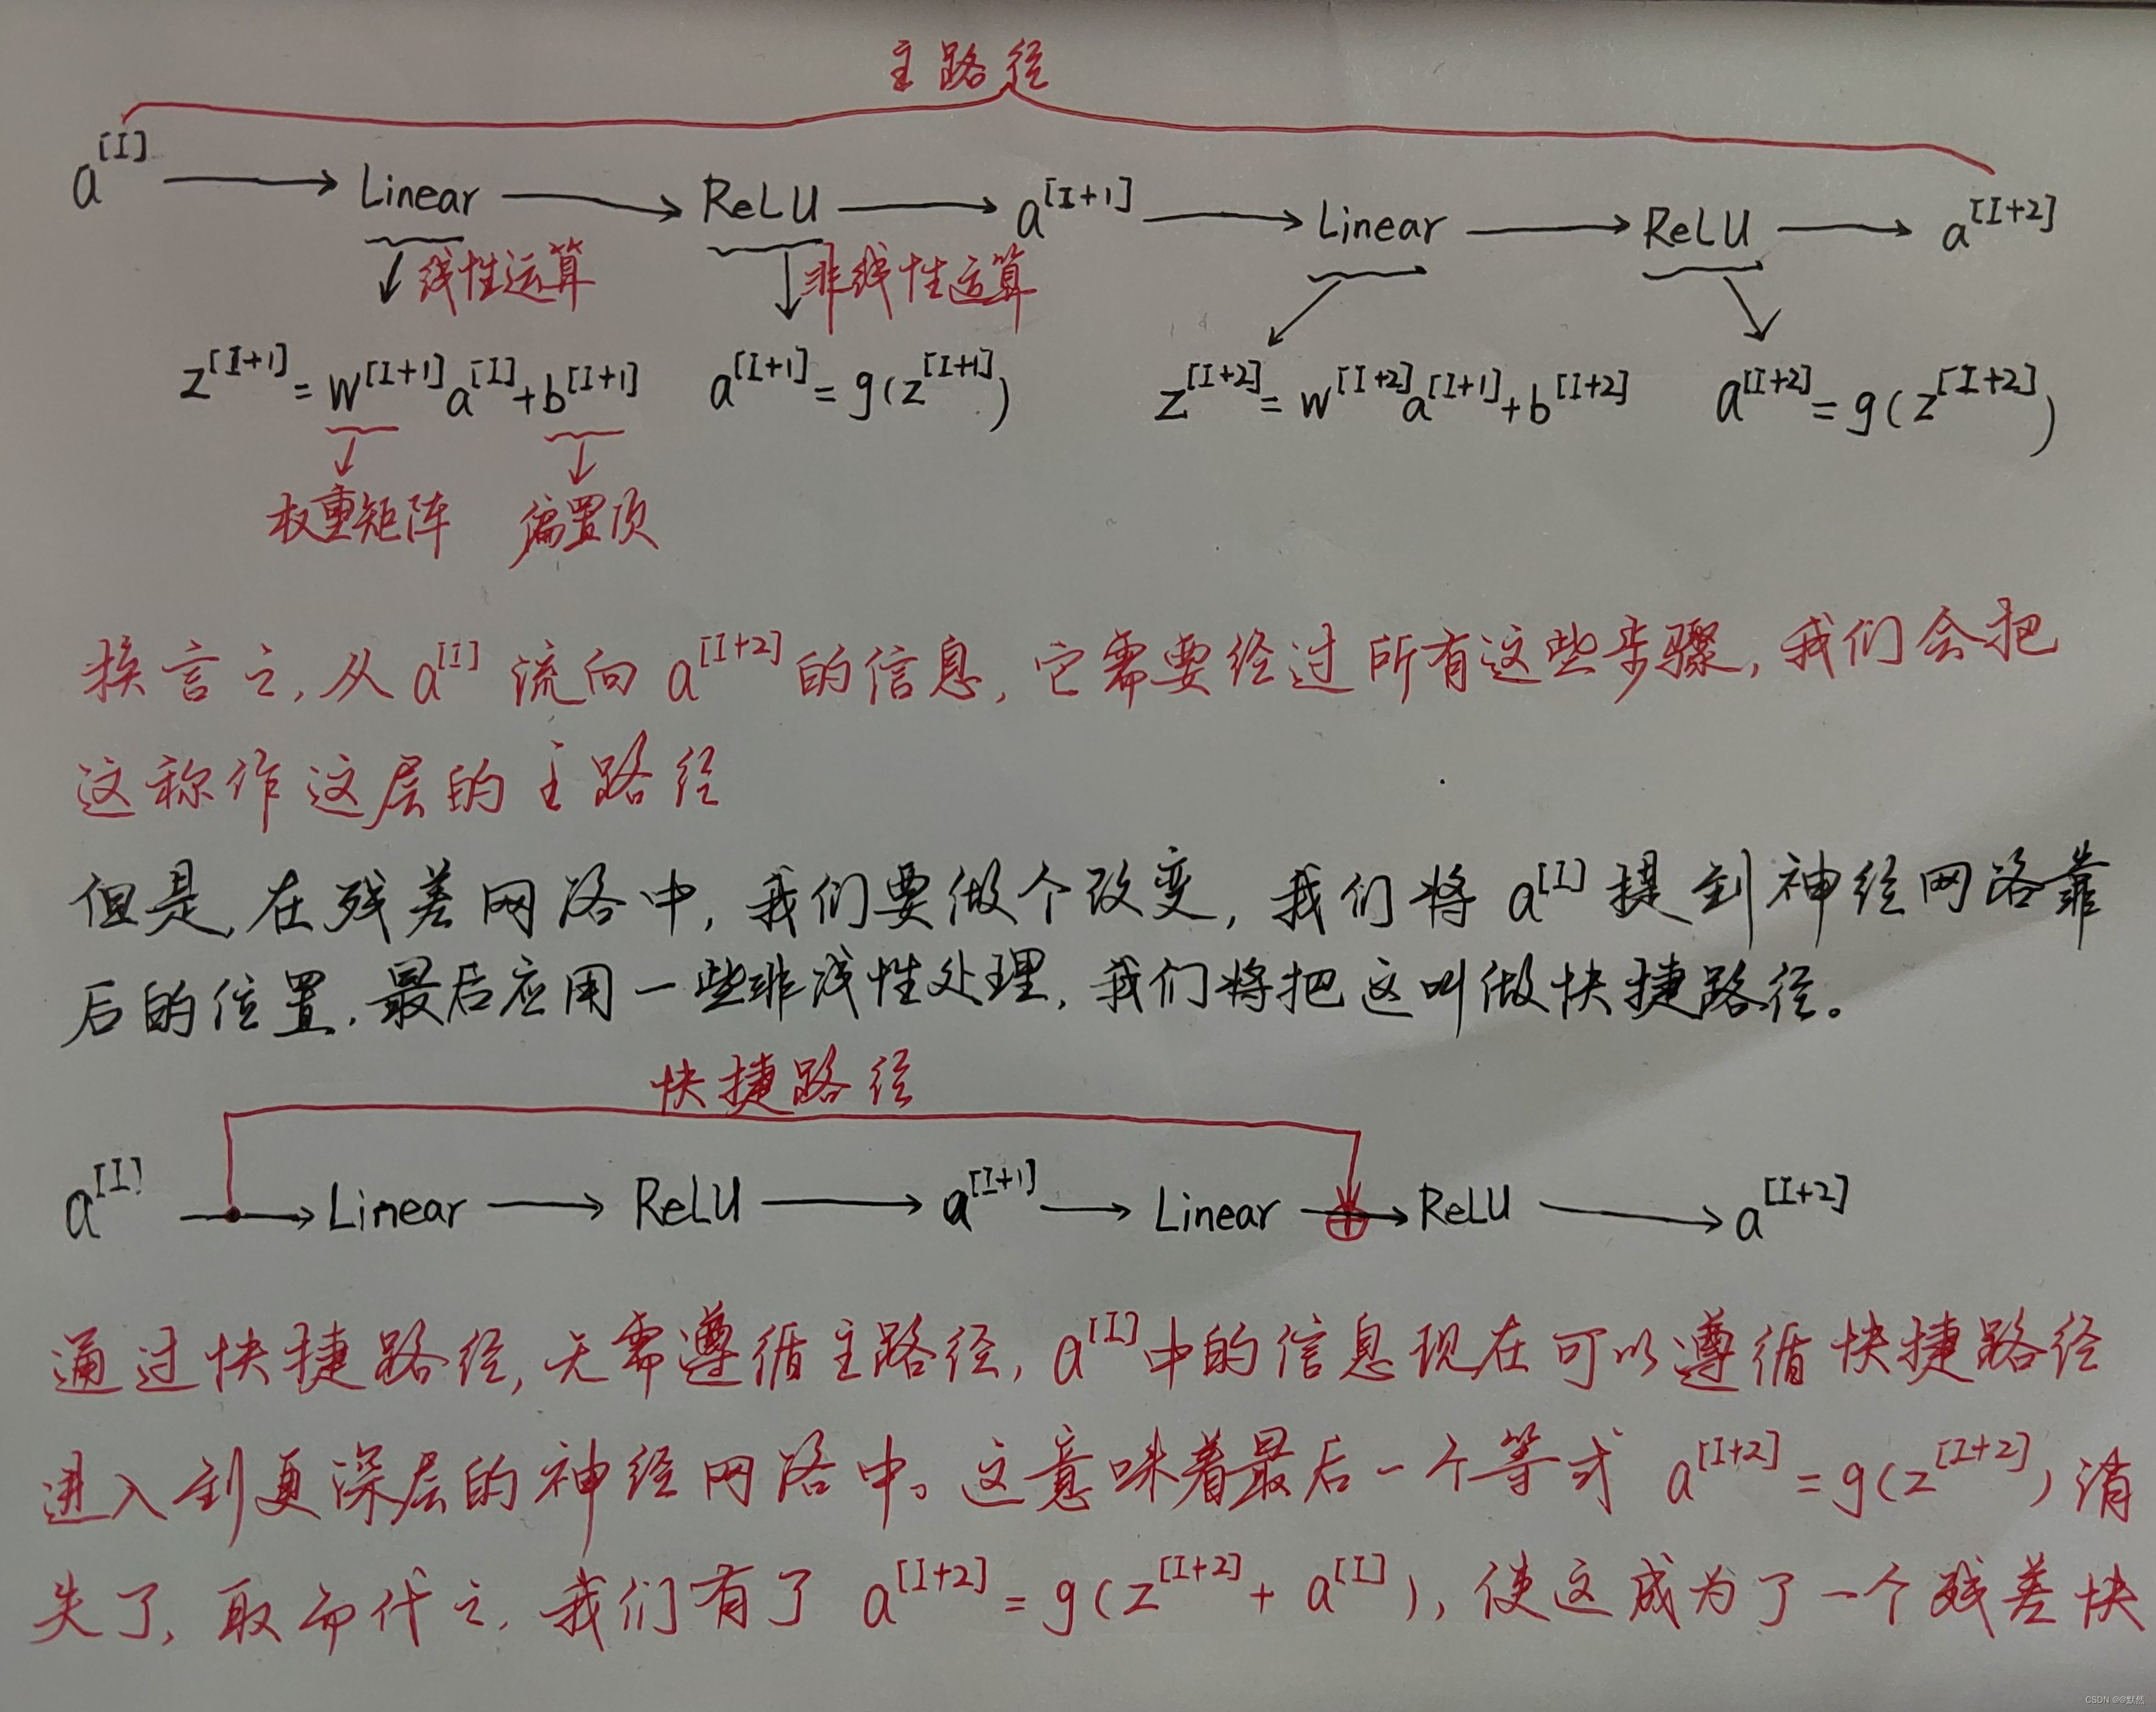 主路径
a^[I] → Linear → ReLU → a^[I+1] → Linear → ReLU → a^[I+2]
线性运算 非线性运算
z^[I+1] = w^[I+1] a^[I] + b^[I+1] a^[I+1] = g(z^[I+1]) z^[I+2] = w^[I+2] a^[I+1] + b^[I+2] a^[I+2] = g(z^[I+2])
权重矩阵 偏置项
换言之, 从 a^[I] 流向 a^[I+2] 的信息, 它需要经过所有这些步骤, 我们会把
这称作这层的主路径
但是, 在残差网络中, 我们要做个改变, 我们将 a^[I] 提到神经网络靠
后的位置, 最后应用一些非线性处理, 我们将把这叫做快捷路径。
快捷路径
a^[I] → Linear → ReLU → a^[I+1] → Linear ⊕→ ReLU → a^[I+2]
通过快捷路径, 无需遵循主路径, a^[I] 中的信息现在可以遵循快捷路径
进入到更深层的神经网络中。这意味着最后一个等式 a^[I+2] = g(z^[I+2]) 消
失了, 取而代之, 我们有了 a^[I+2] = g(z^[I+2] + a^[I]), 使这成为了一个残差快
CSDN @@默然